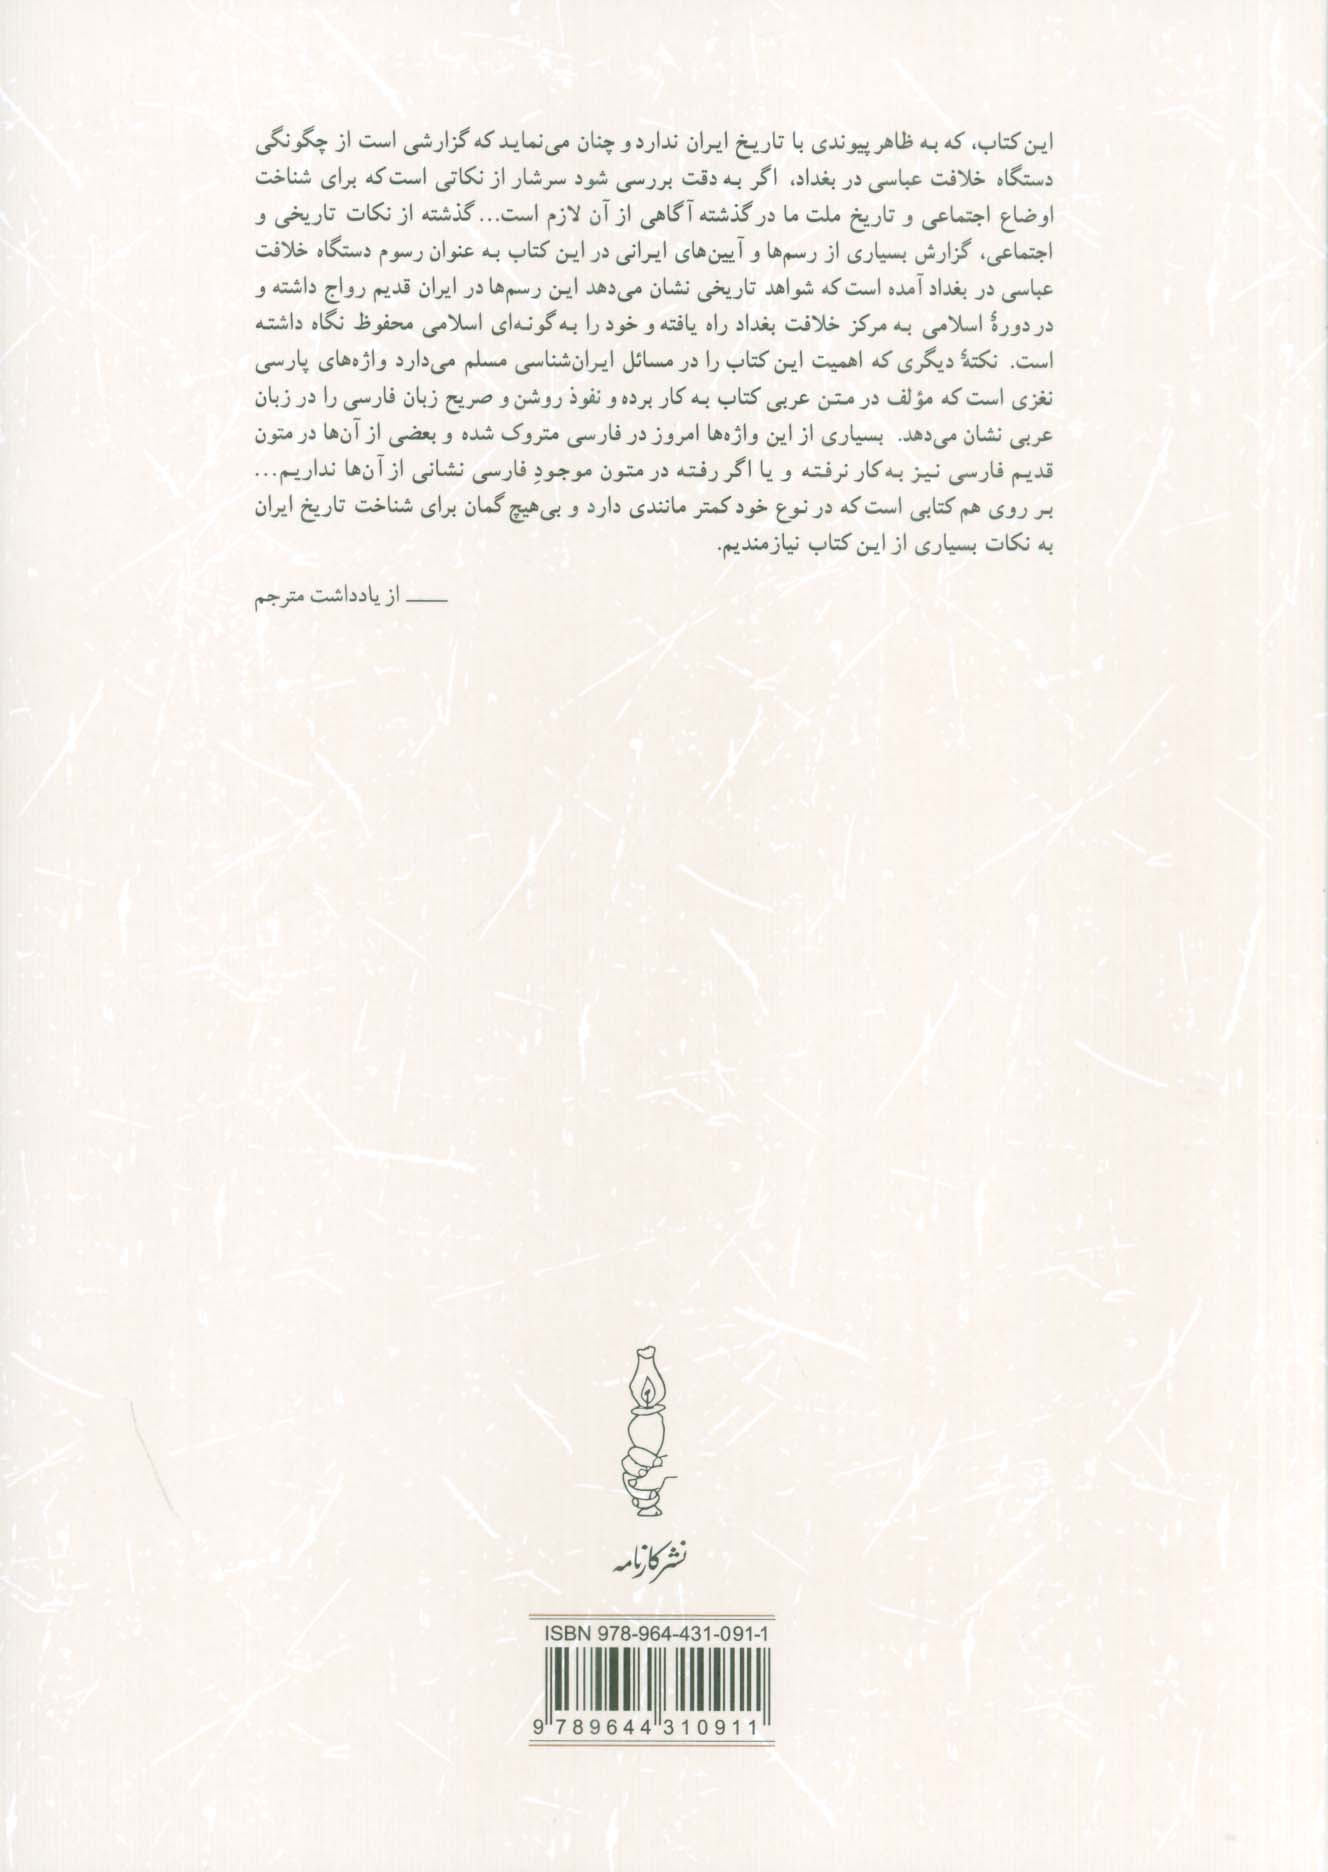 این کتاب، که به ظاهر پیوندی با تاریخ ایران ندارد و چنان می‌نماید که گزارشی است از چگونگی
دستگاه خلافت عباسی در بغداد، اگر به دقت بررسی شود سرشار از نکاتی است که برای شناخت
اوضاع اجتماعی و تاریخ ملت ما در گذشته آگاهی از آن لازم است... گذشته از نکات تاریخی و
اجتماعی، گزارش بسیاری از رسم‌ها و آیین‌های ایرانی در این کتاب به عنوان رسوم دستگاه خلافت
عباسی در بغداد آمده است که شواهد تاریخی نشان می‌دهد این رسم‌ها در ایران قدیم رواج داشته و
در دورهٔ اسلامی به مرکز خلافت بغداد راه یافته و خود را به گونه‌ای اسلامی محفوظ نگاه داشته
است. نکتهٔ دیگری که اهمیت این کتاب را در مسائل ایران‌شناسی مسلم می‌دارد واژه‌های پارسی
نغزی است که مؤلف در متن عربی کتاب به کار برده و نفوذ روشن و صریح زبان فارسی را در زبان
عربی نشان می‌دهد. بسیاری از این واژه‌ها امروز در فارسی متروک شده و بعضی از آن‌ها در متون
قدیم فارسی نیز به‌کار نرفته و یا اگر رفته در متون موجودِ فارسی نشانی از آن‌ها نداریم...
بر روی هم کتابی است که در نوع خود کمتر مانندی دارد و بی‌هیچ گمان برای شناخت تاریخ ایران
به نکات بسیاری از این کتاب نیازمندیم.
ـــــ از یادداشت مترجم
نشر کارنامه
ISBN 978-964-431-091-1
9 789644 310911